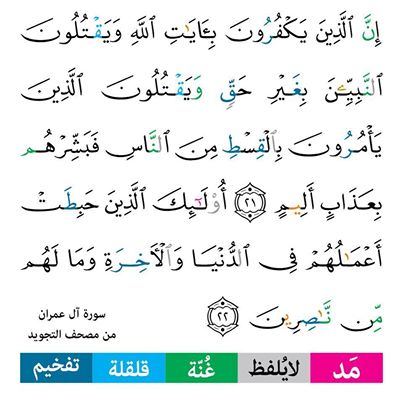 إِنَّ ٱلَّذِينَ يَكْفُرُونَ بِـَٔايَـٰتِ ٱللَّهِ وَيَقْتُلُونَ
ٱلنَّبِيِّـۧنَ بِغَيْرِ حَقٍّ وَيَقْتُلُونَ ٱلَّذِينَ
يَأْمُرُونَ بِٱلْقِسْطِ مِنَ ٱلنَّاسِ فَبَشِّرْهُم
بِعَذَابٍ أَلِيمٍ ٢١ أُو۟لَـٰٓئِكَ ٱلَّذِينَ حَبِطَتْ
أَعْمَـٰلُهُمْ فِى ٱلدُّنْيَا وَٱلْـَٔاخِرَةِ وَمَا لَهُم
مِّن نَّـٰصِرِينَ ٢٢
سورة آل عمران
من مصحف التجويد
مَد لايُلفظ غُنّة قلقلة تفخيم